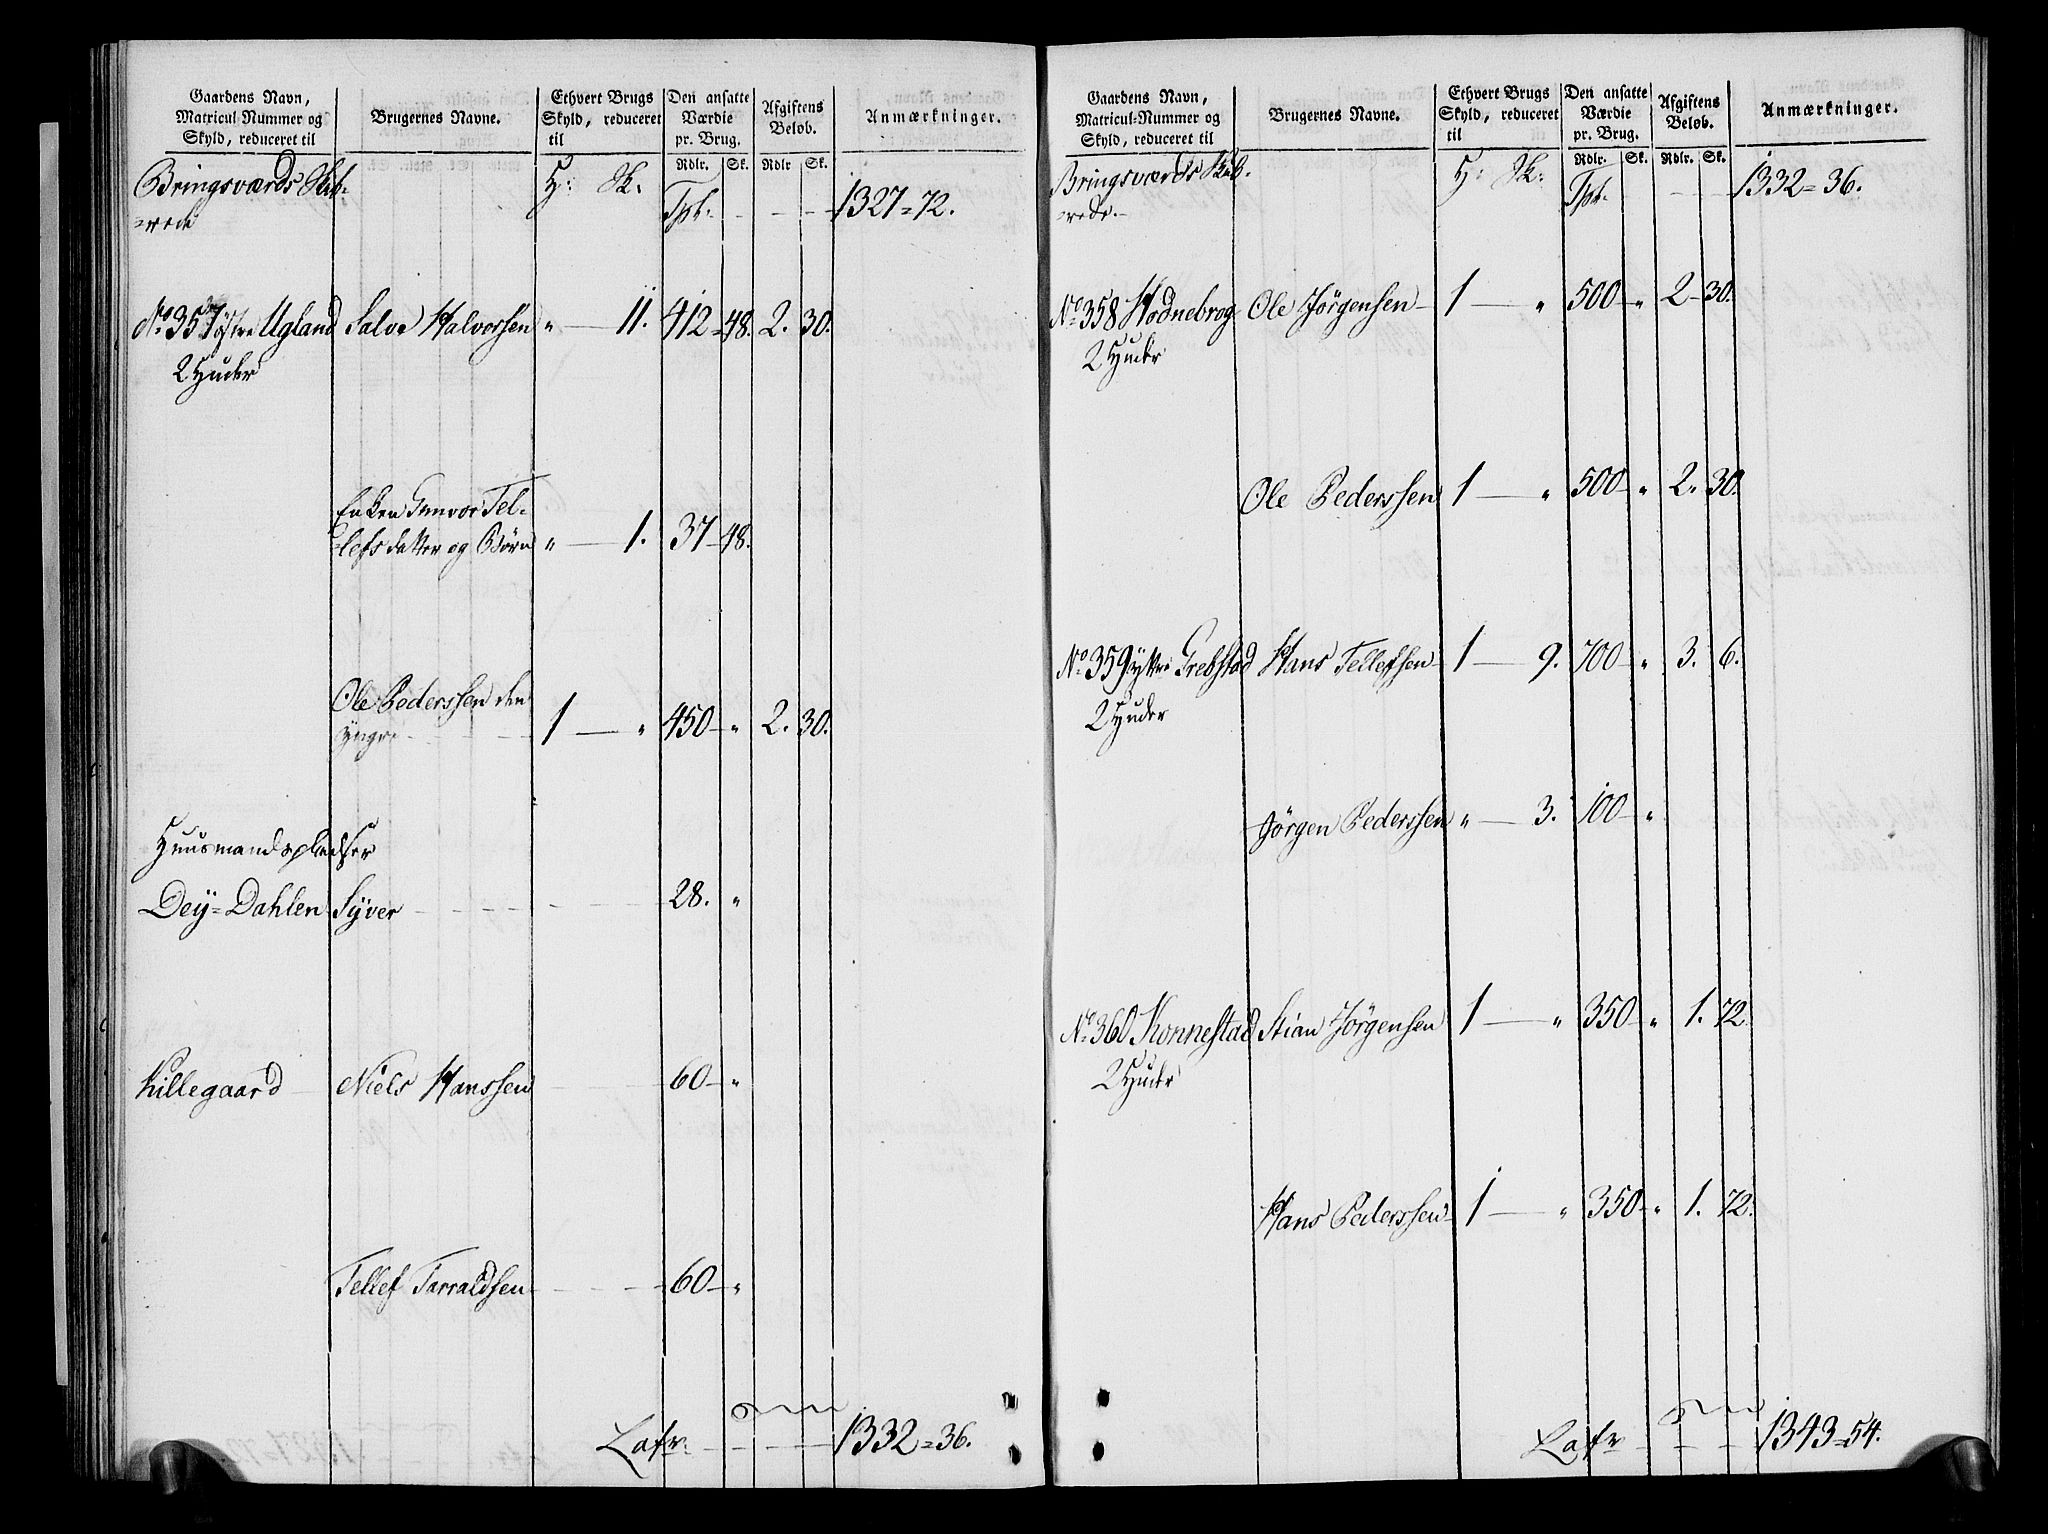 Gaardens Navn, Matricul-Nummer og Skyld, reduceret til | Brugernes Navne. | Ethvert Brugs Skyld, reduceret til | Den ansatte Værdie pr. Brug. | Afgiftens Beløb. | Anmærkninger.
Rdlr. Sk. Rdlr Sk.
Bringsværds Skib- H: Sk: Tpt. 1327=72.
=rede
No 357 Østre Ugland Salve Halvorsen " — 11. 412=48. 2. 30.
2 Huder
Enken Gunvor Tel-
lefsdatter og Børn " — 1. 37-48.
Ole Pederssen den
yngre 1 — " 450 " 2. 30.
Huusmandspladser
Dey=Dahlen Syver 28. "
Killegaard Niels Hanssen 60 "
Tellef Tarraldsen 60 "
Latr. 1332=36.
Gaardens Navn, Matricul-Nummer og Skyld, reduceret til | Brugernes Navne. | Ethvert Brugs Skyld, reduceret til | Den ansatte Værdie pr. Brug. | Afgiftens Beløb. | Anmærkninger.
Rdlr. Sk. Rdlr. Sk.
Bringsværds Skib- H: Sk: Tpt. 1332=36.
=rede.
No 358 Hodnebrog Ole Jørgensen 1 — " 500 " 2-30.
2 Huder
Ole Pederssen 1 — " 500 " 2. 30.
No 359 ytre Grebstad Hans Tellefsen 1 — 9. 700 " 3. 6.
2 Huder
Jørgen Pederssen " — 3. 100 "
No 360 Konnestad Stian Jørgensen 1 — " 350 " 1. 72
2 Huder
Hans Pederssen 1 — " 350 " 1. 72.
Latr 1343=54.